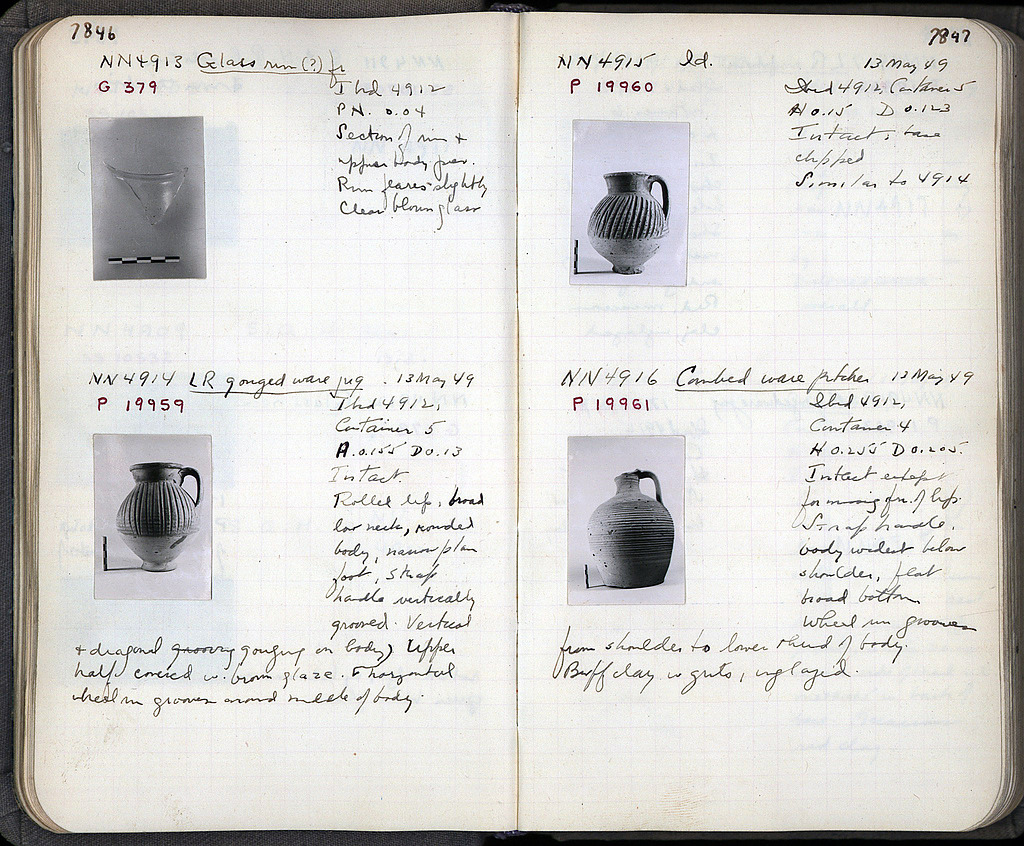 7846
NN4913 Glass rim (?) fr
G 379
Ibid 4912
P.H. 0.04
Section of rim +
upper body pres.
Rim flares slightly
Clear blown glass
NN4914 LR gouged ware jug . 13 May 49
P 19959
Ibid 4912,
Container 5
H.0.155 D 0.13
Intact.
Rolled lip, broad
low neck, rounded
body, narrow plain
foot, strap
handle vertically
grooved. Vertical
+ diagonal grooving gouging on body) Upper
half covered w. brown glaze. horizontal
wheel run grooves around middle of body.
7847
NN 4915 Id. 13 May 49
P 19960
Ibid 4912, Container 5
H 0.15 D 0.123
Intact; base
chipped
Similar to 4914
NN 4916 Combed ware pitcher 13 May 49
P 19961
Ibid 4912,
Container 4
H 0.255 D 0.205.
Intact except
for missing fr. of lip.
Strap handle,
body widest below
shoulder, flat
broad bottom
wheel run grooves
from shoulder to lower third of body.
Buff clay w grits, unglazed.